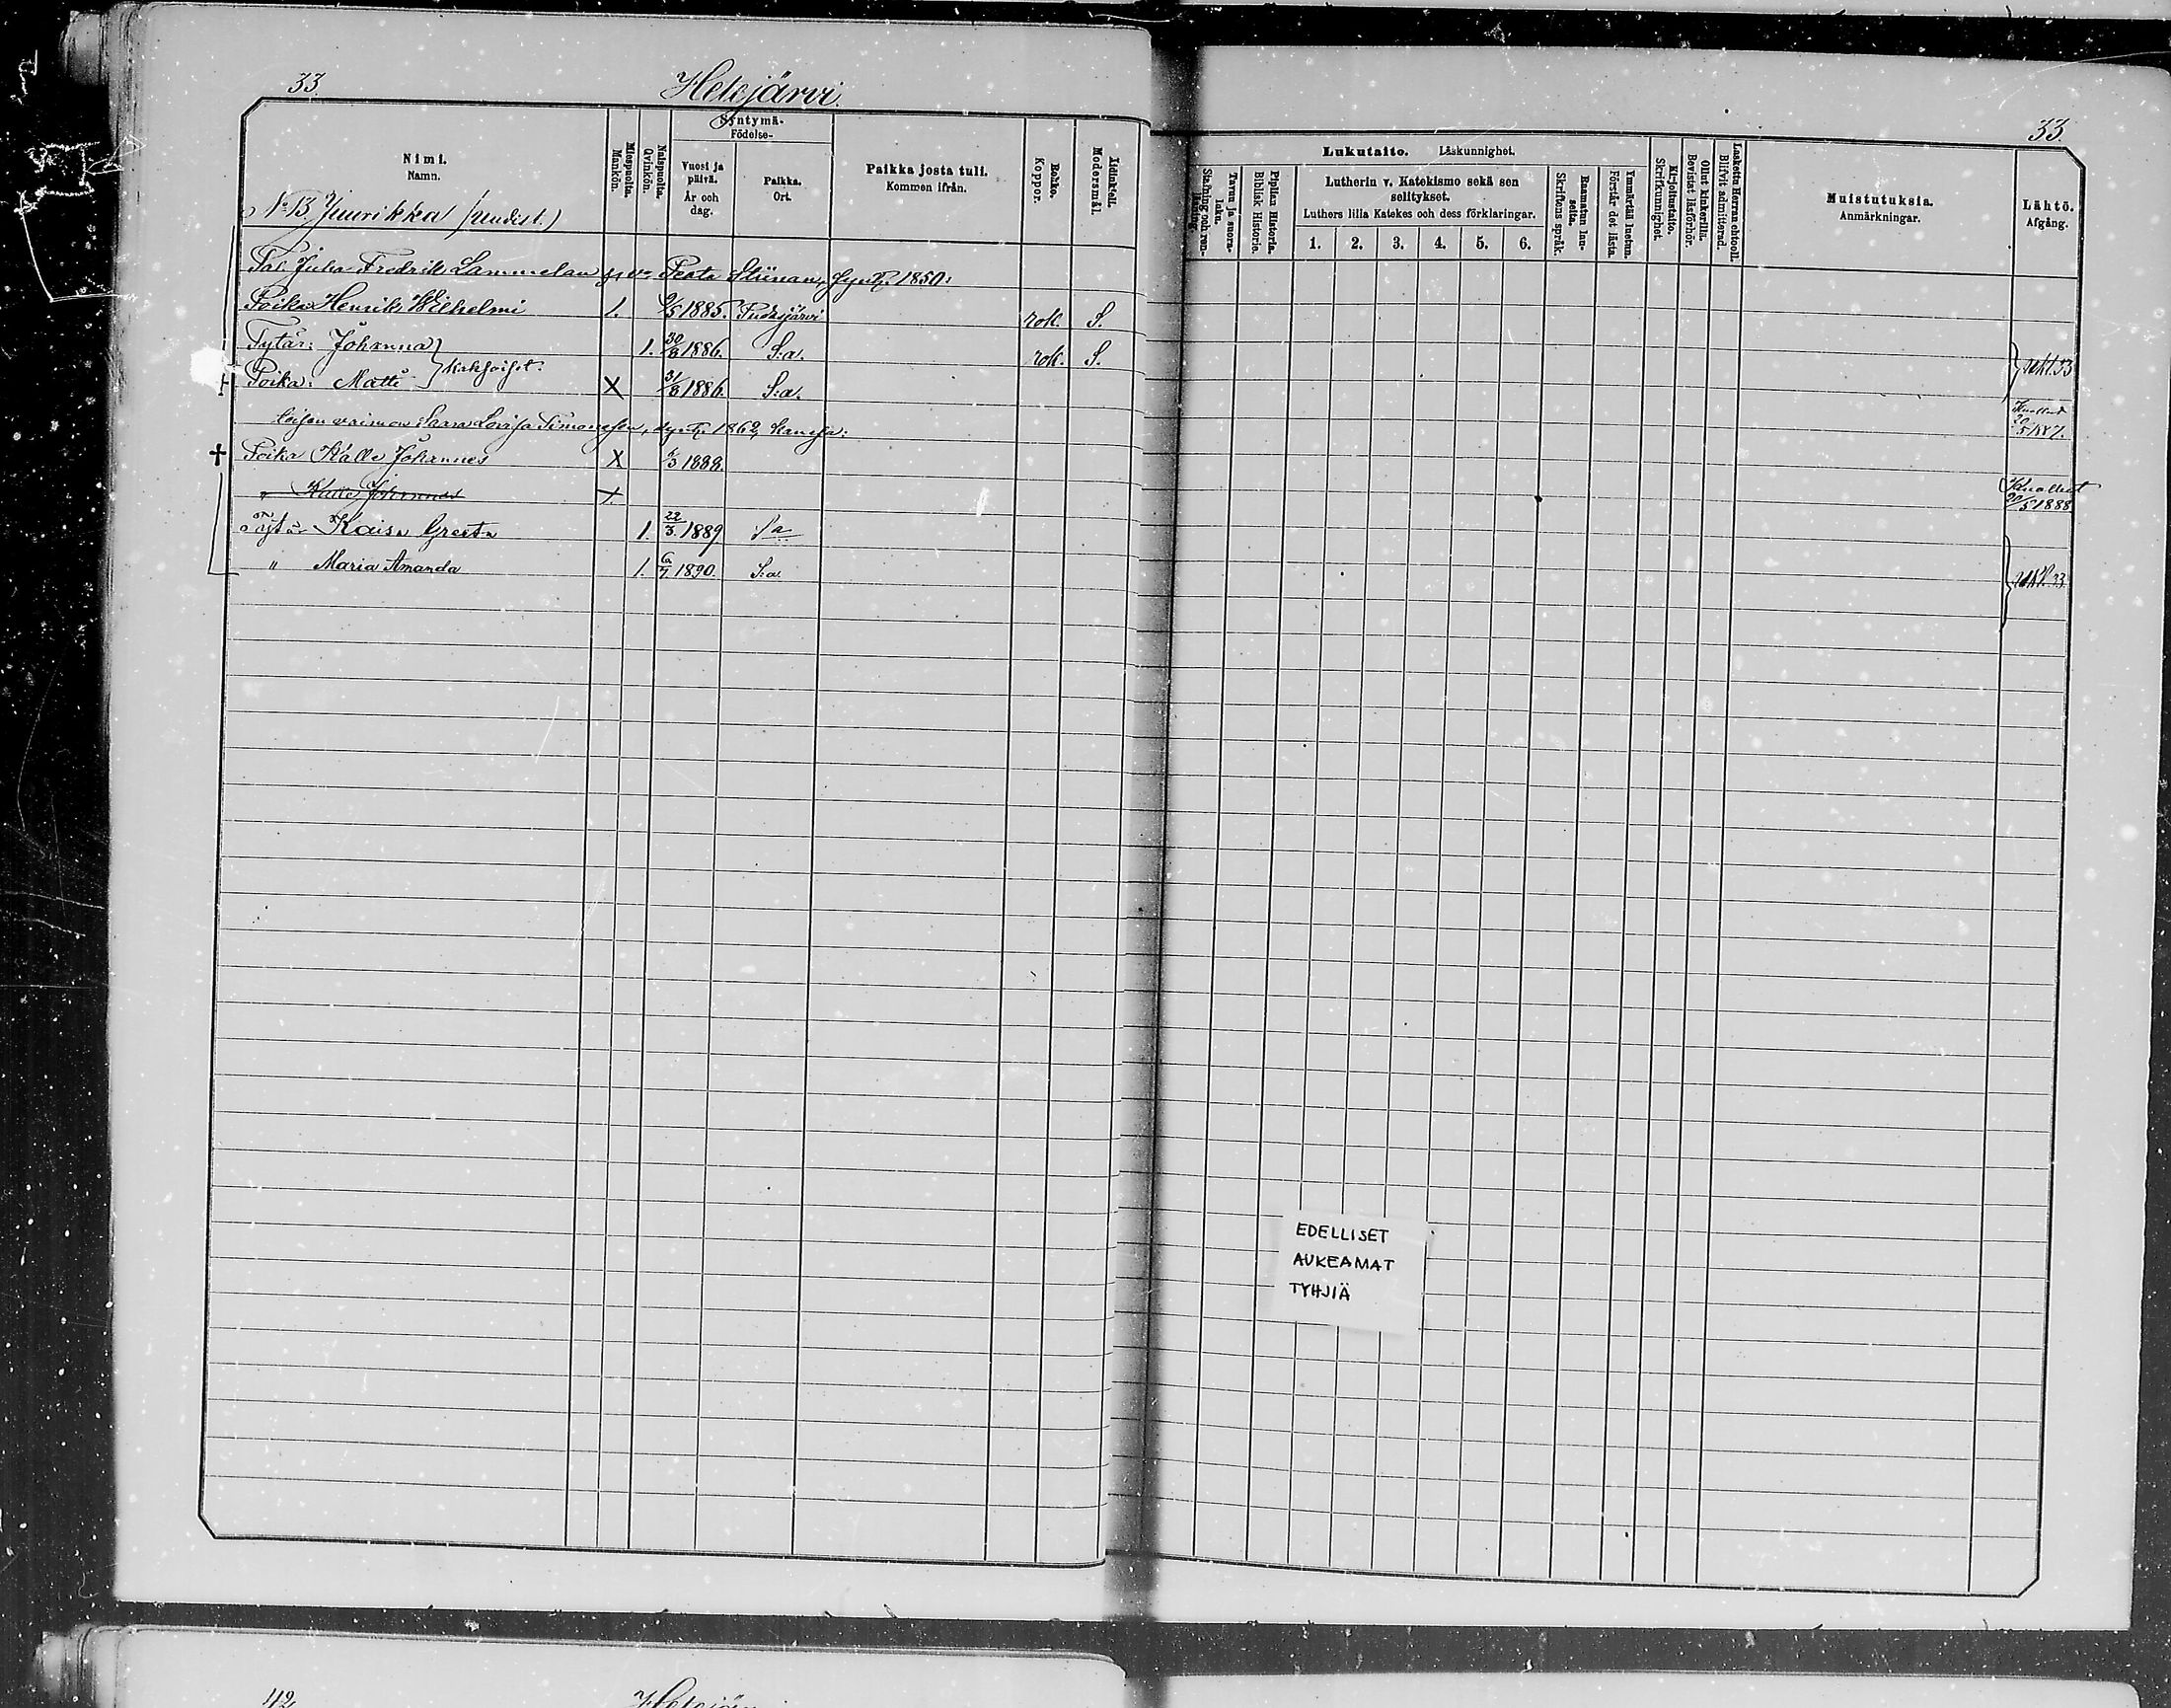 33.
Hetejärvi.
Nimi.
Namn.
Miespuolia.
Mankön.
Naispuolia.
Qvinkön.
Syntymä-
Födelse-
Vuosi ja
päivä.
År och
dag.
Paikka.
Ort.
Paikka josta tuli.
Kommen ifrån.
Rokko.
Koppor.
Äidinkieli.
Modersmål.
No 13 Juurikka (Uudist.)
Tal. Juha Fredrik Lammelan Peata Stiinan, 1850:
Poika: Henrik Wilhelmi 1. 9/5 1885. Pudasjärvi rok. S.
Tytär: Johanna 1. 30/8 1886. S:a. rok. S.
kaksoiset.
Poika: Matti X 31/8 1886. S:a.
vaimon Saara Lovisa Simonesen, synt. 1862, kanssa:
Poika Kalle Johannes X 2/3 1888.
" Kalle Johannes X
Tytär Kaisa Greeta 1. 22/3 1889 S:a
" Maria Amanda 1. 6/7 1890. S:a.
33.
Tavuu ja suora-
luku.
Stafning och ren-
läsning.
Piplian Historia.
Biblisk Historie.
Lukutaito. Läskunnighet.
Lutherin v. Katekismo sekä sen
selitykset.
Luthers lilla Katekes och dess förklaringar.
1. 2. 3. 4. 5. 6.
Raamatun lau-
seita.
Skriftens språk.
Ymmärtää luetun.
Förstår det lästa.
Kirjoitustaito.
Skrifkunnighet.
Ollut kinkerillä.
Bevistat läsförhör.
Laskettu Herran ehtooll.
Blifvit admitterad.
Muistutuksia.
Anmärkningar.
Lähtö.
Afgång.
Kuollut
20/5 1887.
Kuollut
20/5 1888
EDELLISET
AUKEAMAT
TYHJIÄ
42